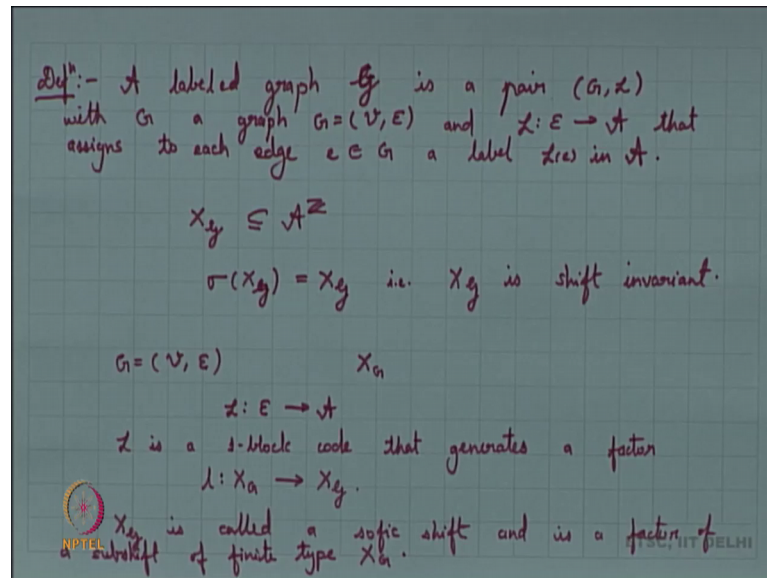 Defⁿ:- A labeled graph 𝒢 is a pair (G, ℒ)
with G a graph G = (𝒱, ℰ) and ℒ: ℰ → 𝒜 that
assigns to each edge e ∈ G a label ℒ(e) in 𝒜.
X_𝒢 ⊆ 𝒜^ℤ
σ(X_𝒢) = X_𝒢 i.e. X_𝒢 is shift invariant.
G = (𝒱, ℰ) X_G
ℒ: ℰ → 𝒜
ℒ is a 1-block code that generates a factor
l: X_G → X_𝒢.
X_𝒢 is called a sofic shift and is a factor of
a subshift of finite type X_G.
NPTEL
ETSC, IIT DELHI